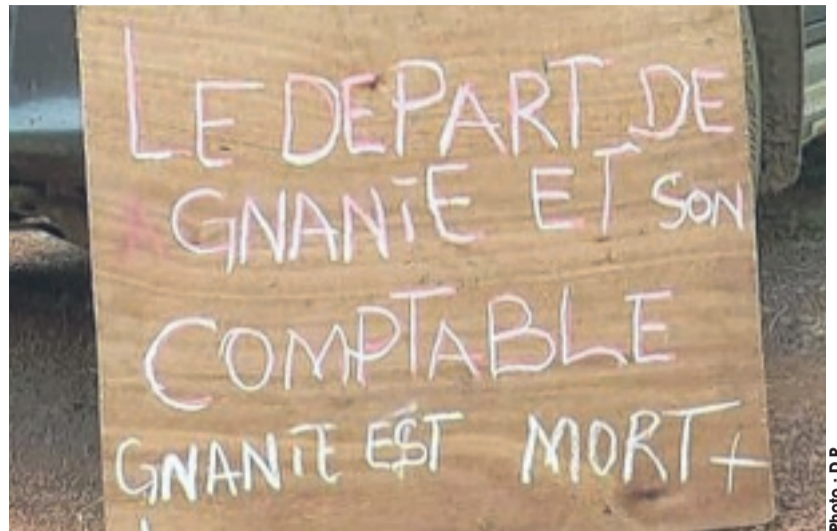 LE DEPART DE
GNANiE ET SON
COMPTABLE
GNANiE EST MORT +
Photo : D.R